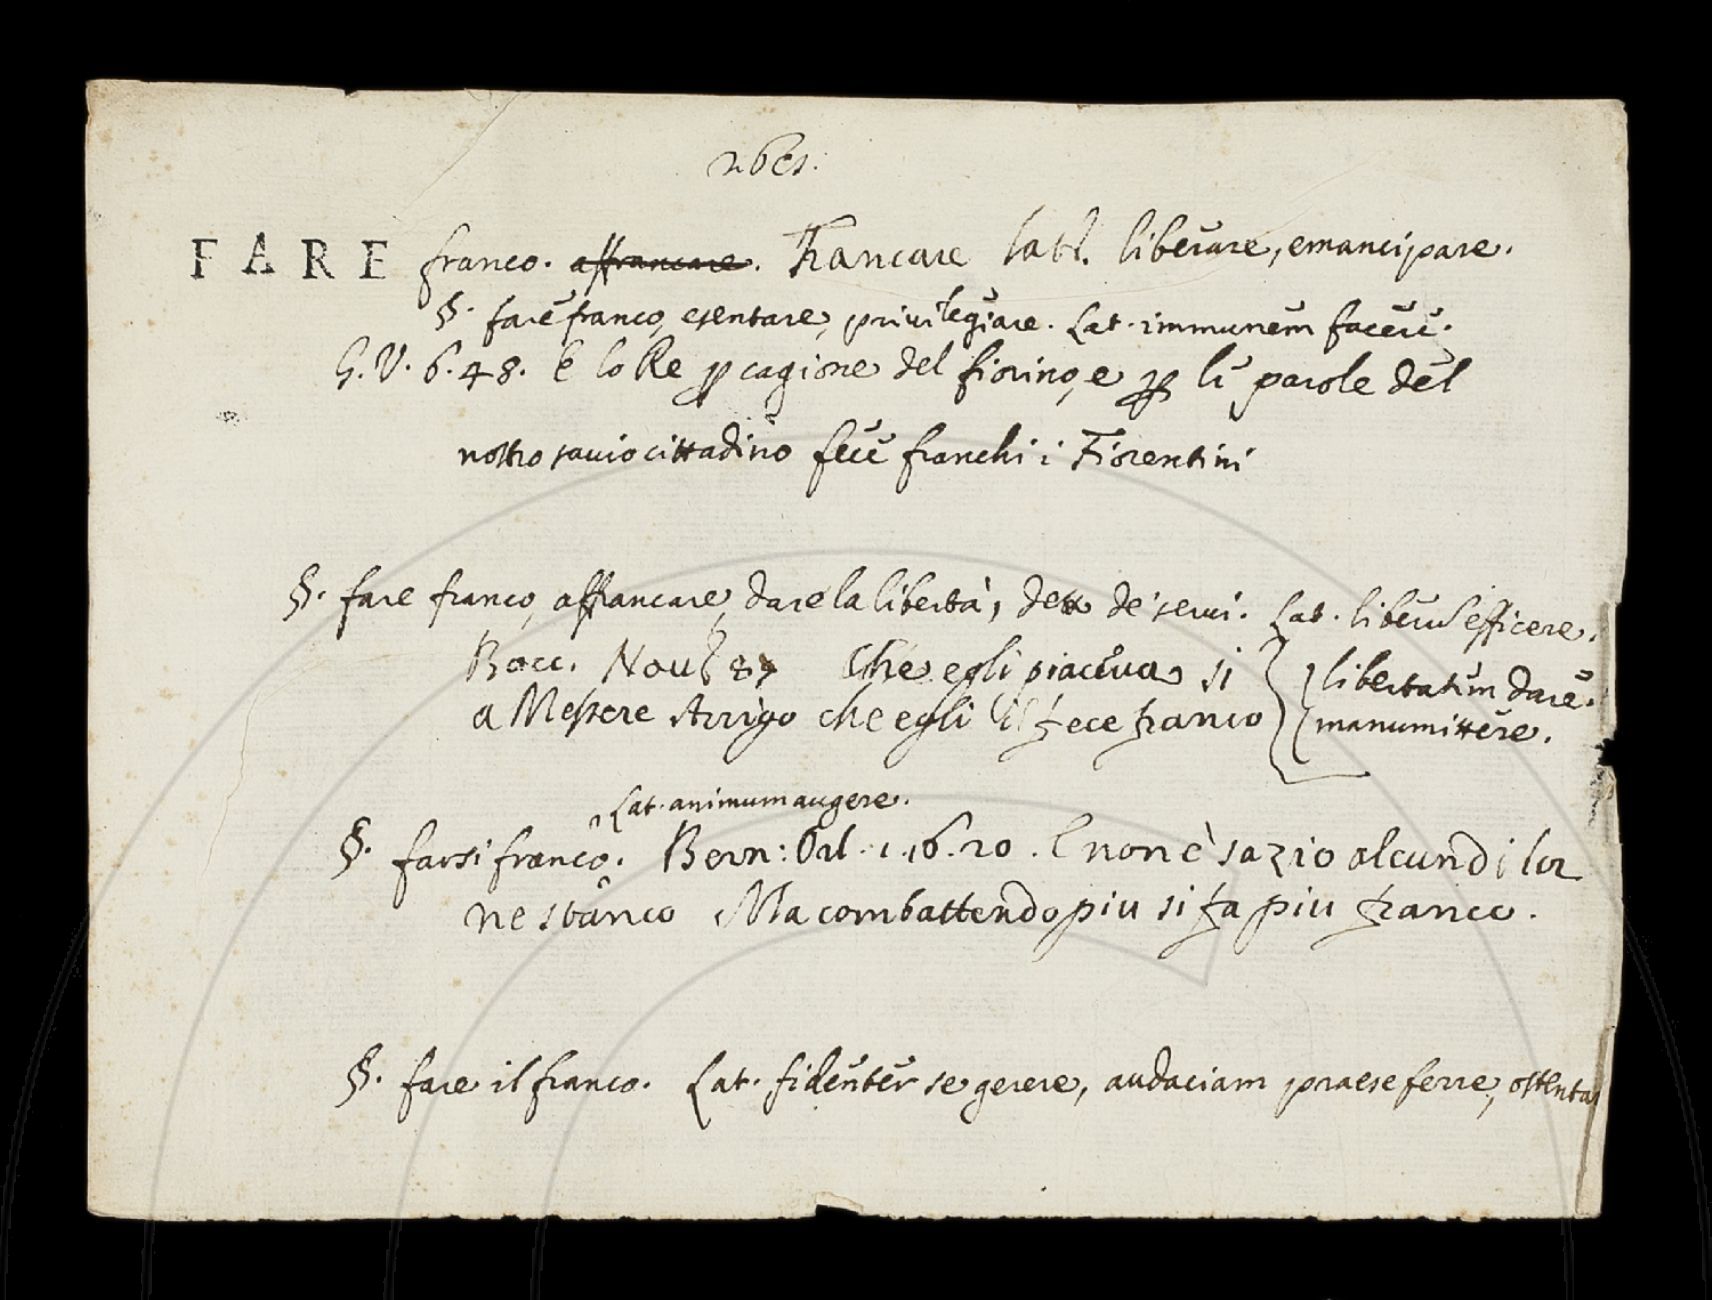 FARE franco. affrancare. Francare Lat. liberare, emancipare.
§. fare franco, esentare, privilegiare. Lat. immunem facere.
G. V. 6. 48. E lo Re p cagione del fiorino, e p le parole del
nostro savio cittadino fece franchi i Fiorentini
§. fare franco, affrancare, dare la libertà, detto de' servi. Lat. liberum efficere.
Bocc. Nov. 87 Che egli piaceva si
libertatem dare.
a Messere Arrigo che egli il fece franco
manumittere.
Lat. animum augere.
§. farsi franco. Bern: Orl. 1. 16. 20. E non è sazio alcun di lor
ne stanco Ma combattendo piu si fa piu franco.
§. fare il franco. Lat. fidenter se gerere, audaciam prae se ferre,